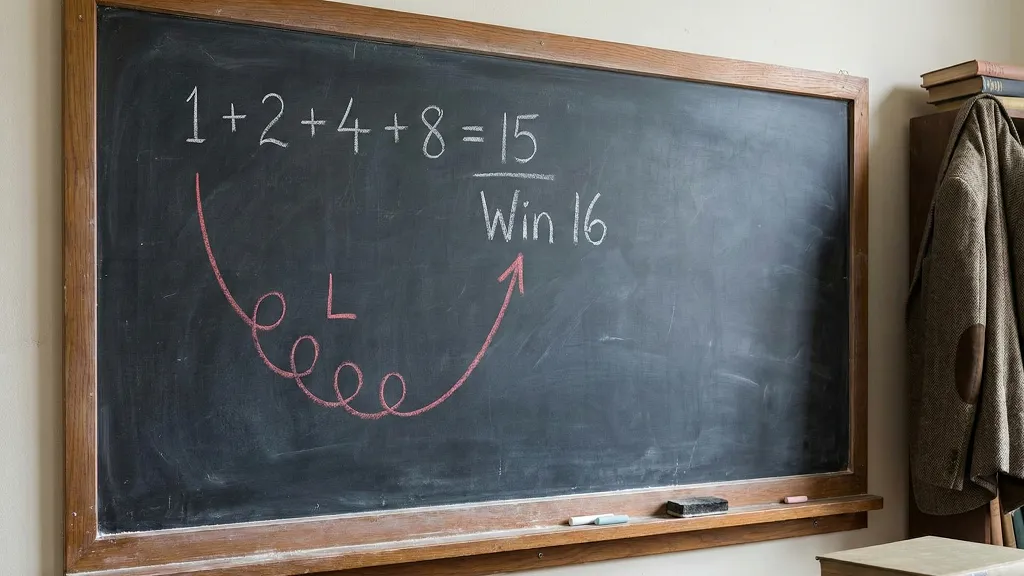 1 + 2 + 4 + 8 = 15
Win 16
L